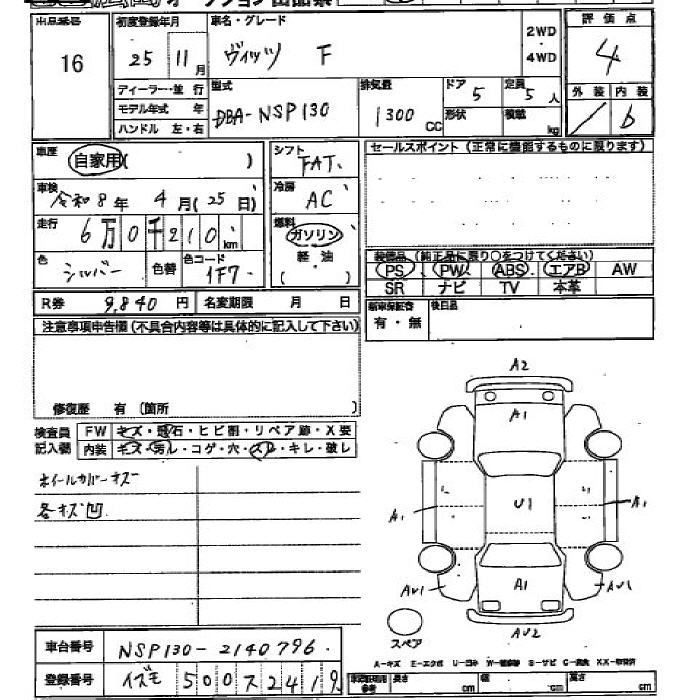 オークション出品票
出品番号 16
初度登録年月 25 11月
車名・グレード ヴィッツ F
2WD・4WD
評価点 4
ディーラー・並行
モデル年式 年
ハンドル 左・右
型式 DBA-NSP130
排気量 1300 CC
ドア 5
形状
定員 5人
積載 kg
外装 内装
/ b
車歴 自家用( )
車検 令和8年 4月(25日)
走行 6万0千210km
色 シルバー 色替 色コード 1F7
シフト FAT
冷房 AC
燃料 ガソリン
軽油
( )
セールスポイント(正常に機能するものに限ります)
装備品(純正品に限り○をつけてください)
PS PW ABS エアB AW
SR ナビ TV 本革
R券 9,840円 名変期限 月 日
新車保証書 有・無
後日品
注意事項申告欄(不具合内容等は具体的に記入して下さい)
修復歴 有(箇所 )
検査員記入欄
FW キズ・飛石・ヒビ割・リペア跡・X要
内装 キズ・汚れ・コゲ・穴・スレ・キレ・破レ
ホイールカバーキズ
各キズ凹
A2
A1
A1
U1
A1
AU1
A1
AU1
AU2
スペア
車台番号 NSP130-2140796
登録番号 イズモ 500 ス 2419
長さ cm 幅 cm 高さ cm